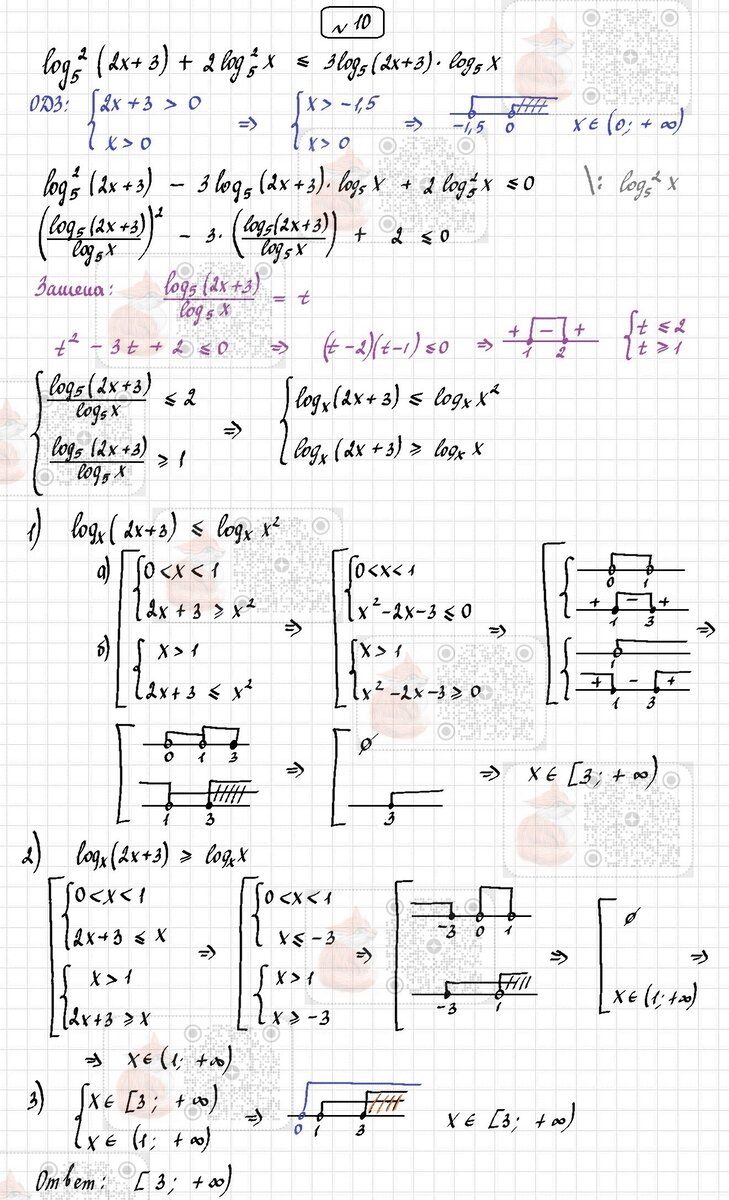 ~ 10
log₅²(2x+3) + 2log₅²x ≤ 3log₅(2x+3)·log₅x
ОДЗ: { 2x+3 > 0 ; x > 0 ⇒ { x > -1,5 ; x > 0 ⇒ -1,5 0 x ∈ (0; +∞)
log₅²(2x+3) - 3log₅(2x+3)·log₅x + 2log₅²x ≤ 0 \: log₅²x
(log₅(2x+3)/log₅x)² - 3·(log₅(2x+3)/log₅x) + 2 ≤ 0
Замена: log₅(2x+3)/log₅x = t
t² - 3t + 2 ≤ 0 ⇒ (t-2)(t-1) ≤ 0 ⇒ + - + 1 2 { t ≤ 2 ; t ≥ 1
{ log₅(2x+3)/log₅x ≤ 2 ⇒ { logₓ(2x+3) ≤ logₓx²
log₅(2x+3)/log₅x ≥ 1 logₓ(2x+3) ≥ logₓx
1) logₓ(2x+3) ≤ logₓx²
а) [ { 0<x<1 [ { 0<x<1 [ { 0 1
2x+3 ≥ x² ⇒ x²-2x-3 ≤ 0 ⇒ + - + 1 3 ⇒
б) { x>1 { x>1 { 1
2x+3 ≤ x² x²-2x-3 ≥ 0 + - + 1 3
[ 0 1 3 ⇒ [ ∅ ⇒ x ∈ [3; +∞)
1 3 3
2) logₓ(2x+3) ≥ logₓx
[ { 0<x<1 [ { 0<x<1 [ -3 0 1 [ ∅
2x+3 ≤ x ⇒ x ≤ -3 ⇒ ⇒ ⇒
{ x>1 { x>1 -3 1 x ∈ (1; +∞)
2x+3 ≥ x x ≥ -3
⇒ x ∈ (1; +∞)
3) { x ∈ [3; +∞) ⇒ 0 1 3 x ∈ [3; +∞)
x ∈ (1; +∞)
Ответ: [3; +∞)